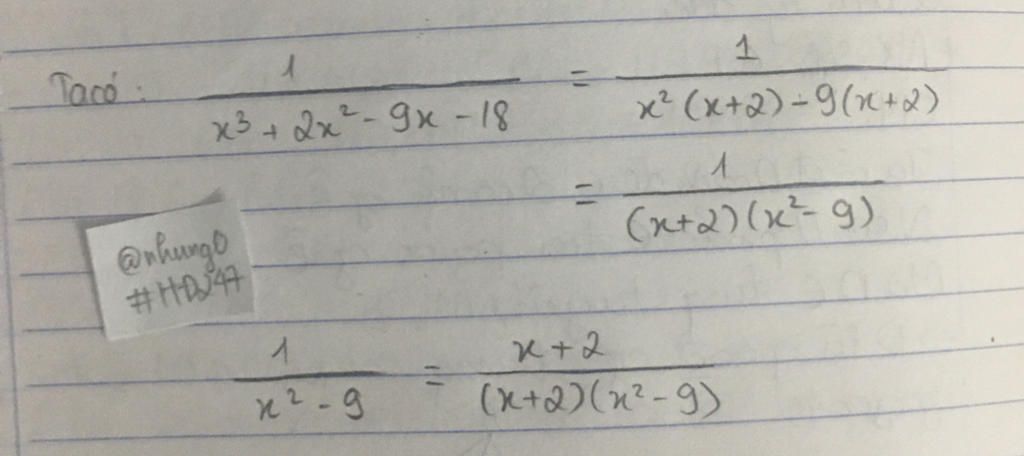 Ta có: 1/(x³ + 2x² - 9x - 18) = 1/(x²(x+2) - 9(x+2))
= 1/((x+2)(x² - 9))
@nhung0
#HDJ47
1/(x² - 9) = (x+2)/((x+2)(x² - 9))